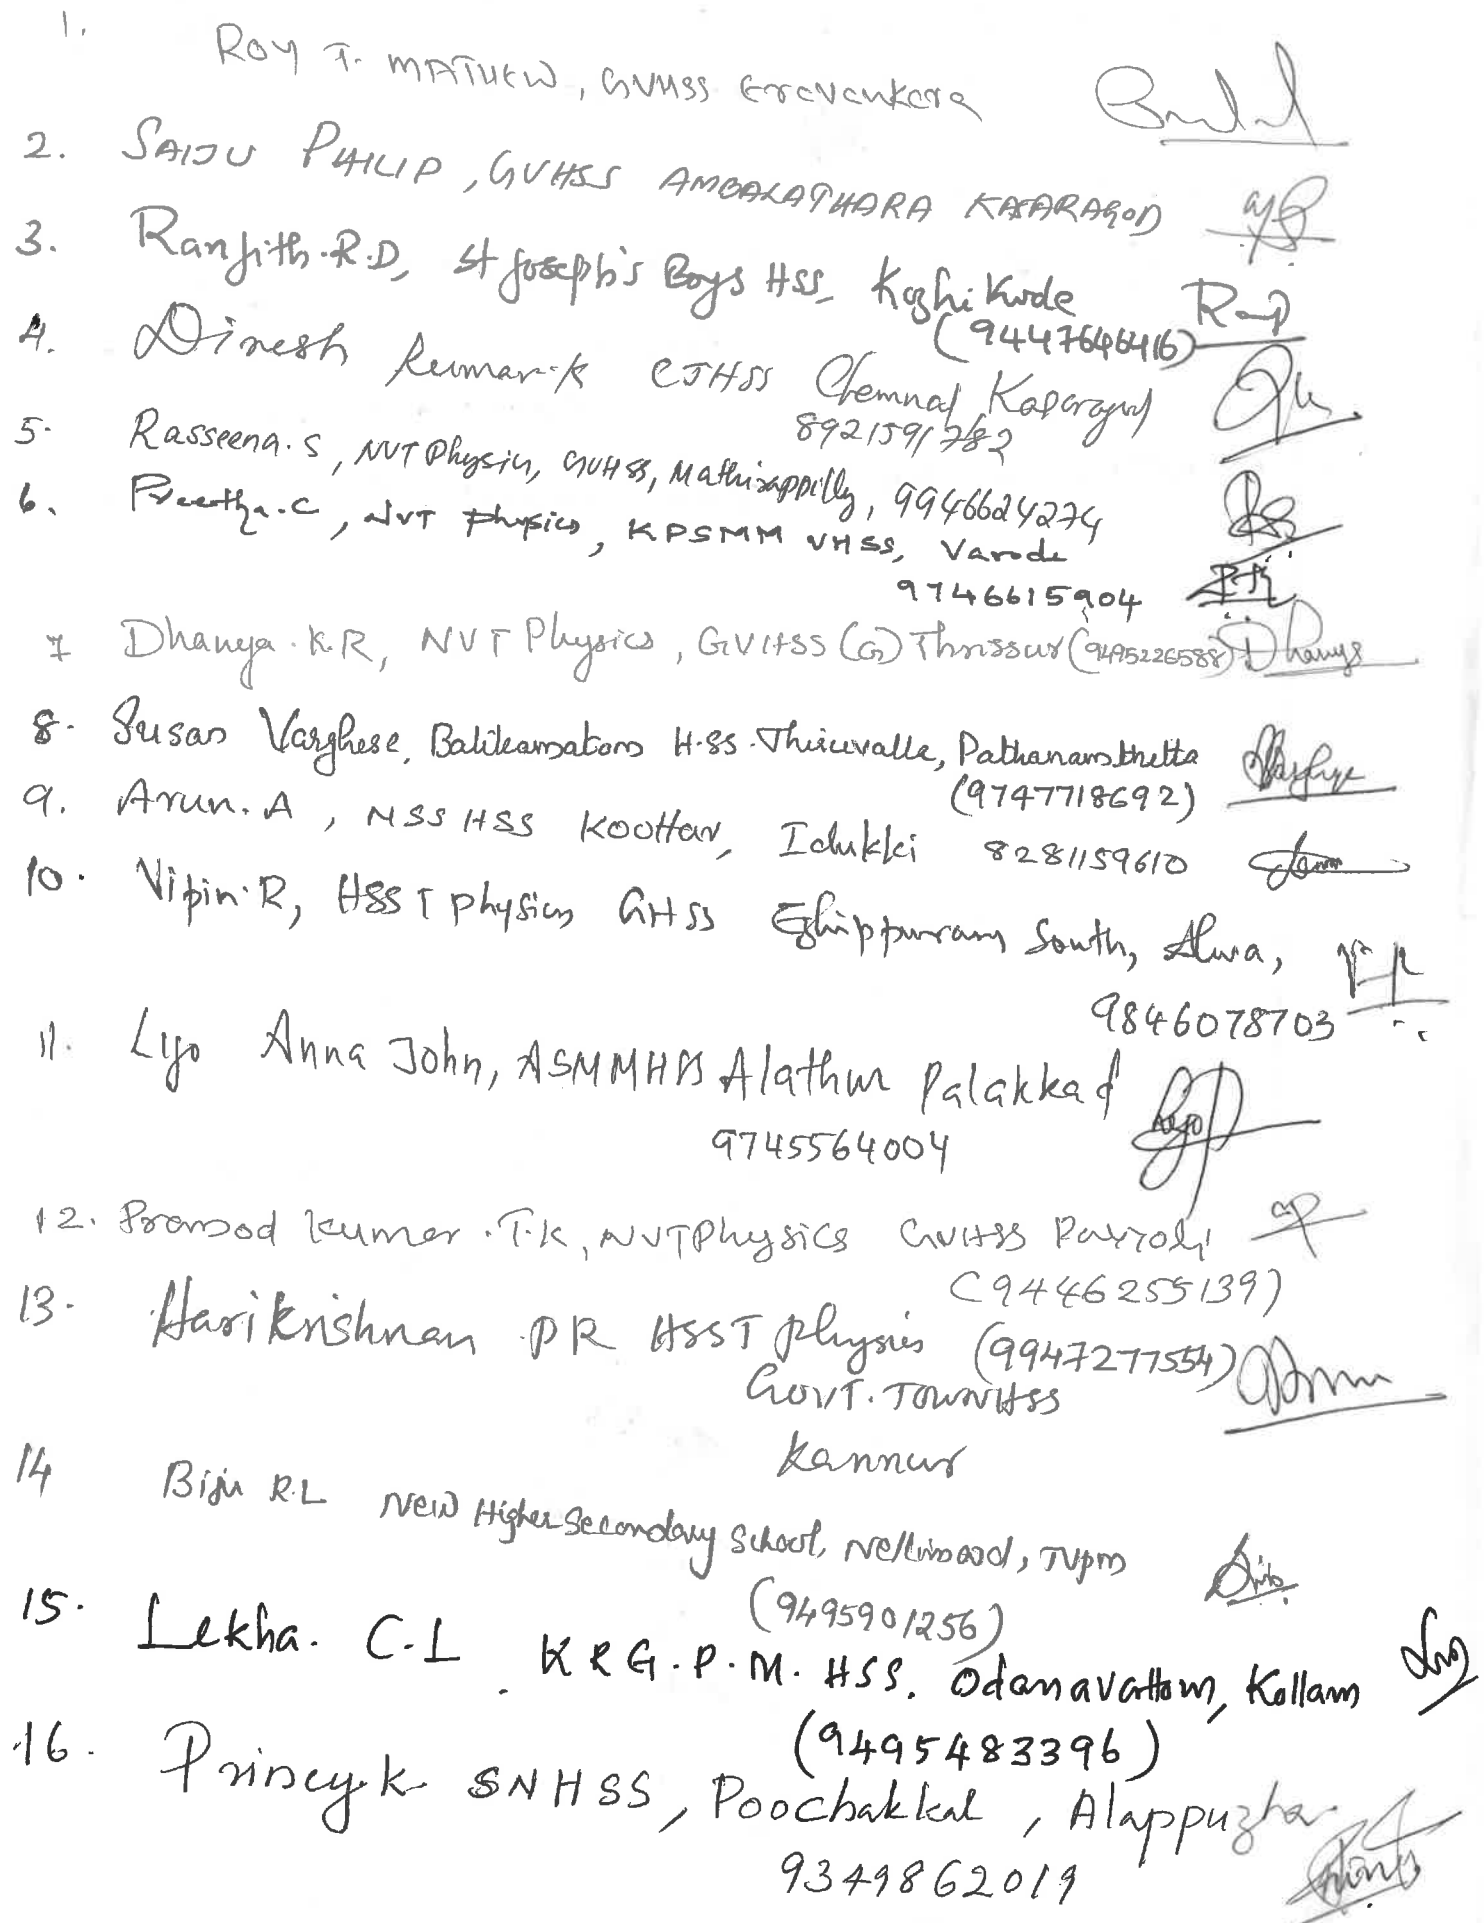 1. ROY T. MATHEW, GVHSS Eravankara
2. SAIJU PHILIP, GVHSS AMBALATHARA KASARAGOD
3. Ranjith.R.D, St Joseph's Boys HSS, Kozhikode
(9447646416)
4. Dinesh Kumar.K CJHSS Chemnad, Kasaragod
8921591782
5. Rasseena.S, NVT Physics, GVHSS, Mathirappilly, 9946624274
6. Preetha.C, NVT Physics, KPSMM VHSS, Varode
9746615904
7 Dhanya.K.R, NVT Physics, GVHSS (G) Thrissur (9495226588) Dhanya
8. Susan Varghese, Balikamatom H.SS. Thiruvalla, Pathanamthitta
(9747718692)
9. Arun.A, NSS HSS Koottar, Idukki 8281159610
10. Vipin.R, HSST physics GHSS Ezhippuram South, Alwa,
9846078703
11. Liyo Anna John, ASMMHSS Alathur Palakkad
9745564004
12. Pramod Kumar.T.K, NVT Physics GVHSS Payyoli
(9446255139)
13. Harikrishnan PR HSST Physics (9947277554)
GOVT. TOWN HSS
Kannur
14 Biju R.L New Higher Secondary School, Nellimood, TVpm
(9495901256)
15. Lekha. C.L KRG.P.M. HSS. Odanavattom, Kollam
(9495483396)
16. Princy.K SNHSS, Poochakkal, Alappuzha
9349862019